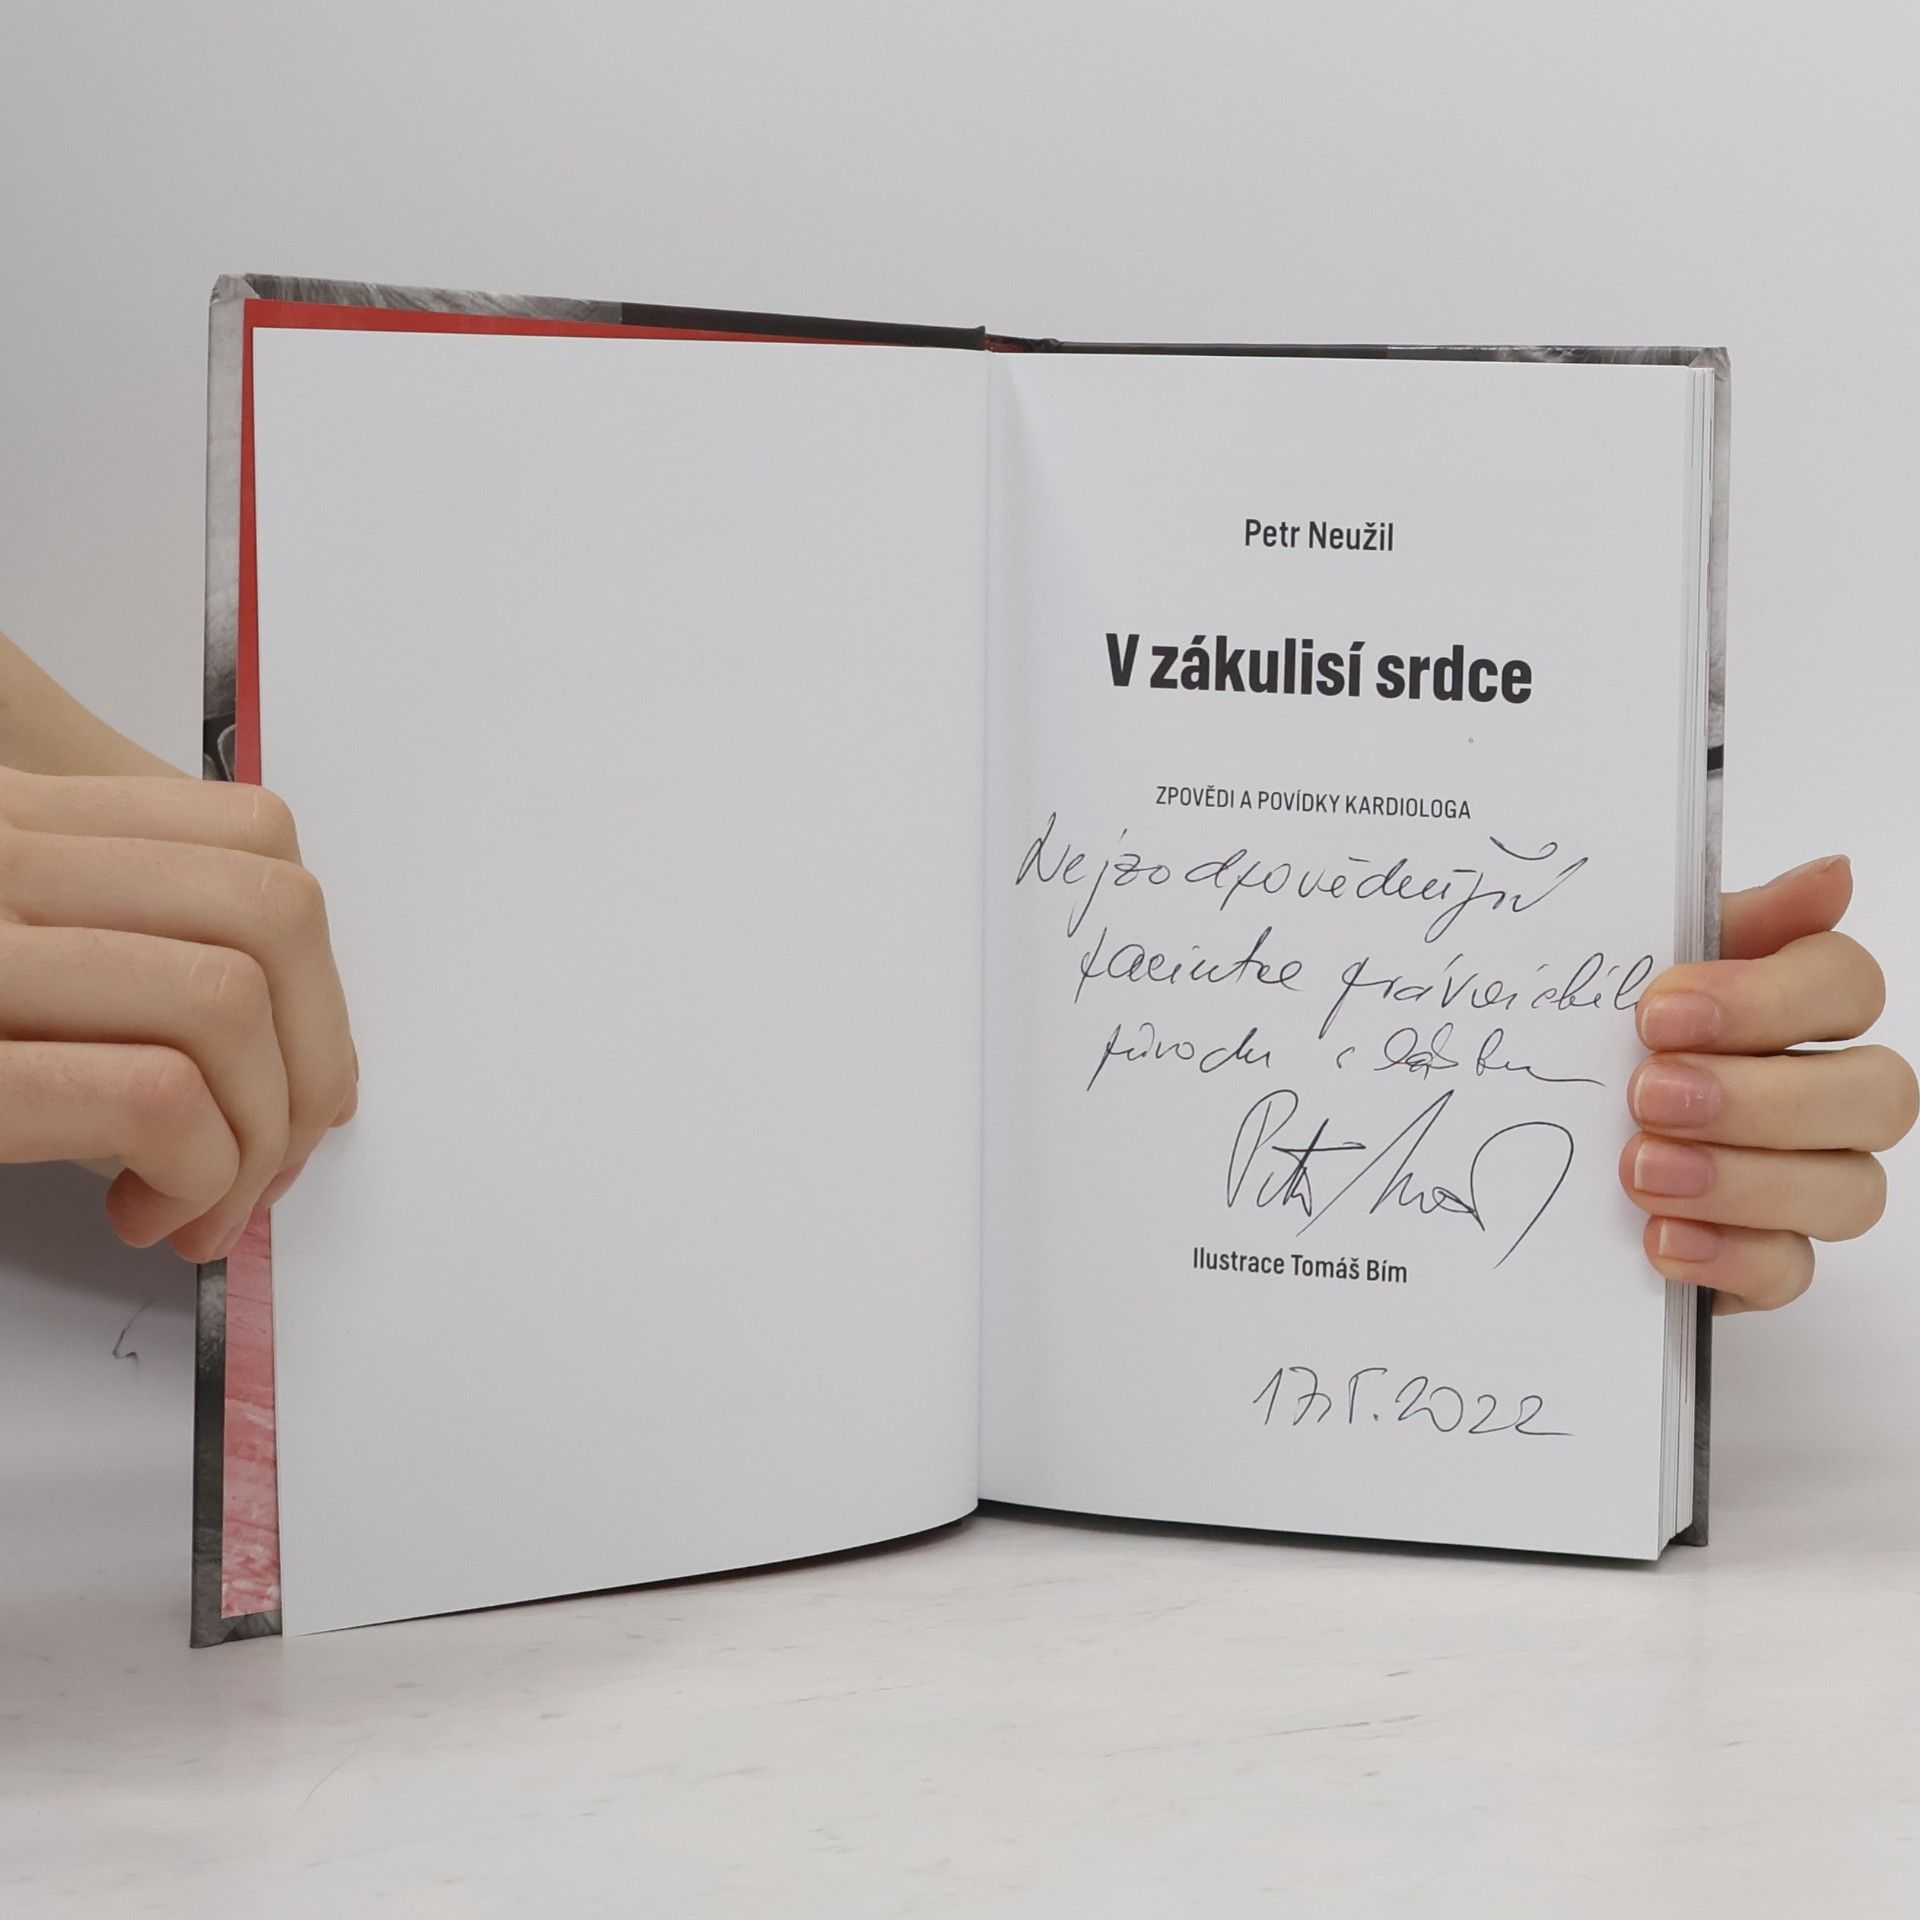 Petr Neužil
V zákulisí srdce
ZPOVĚDI A POVÍDKY KARDIOLOGA
Nejzodpovědnější
pacientce
původu s láskou
Petr
Ilustrace Tomáš Bím
2022